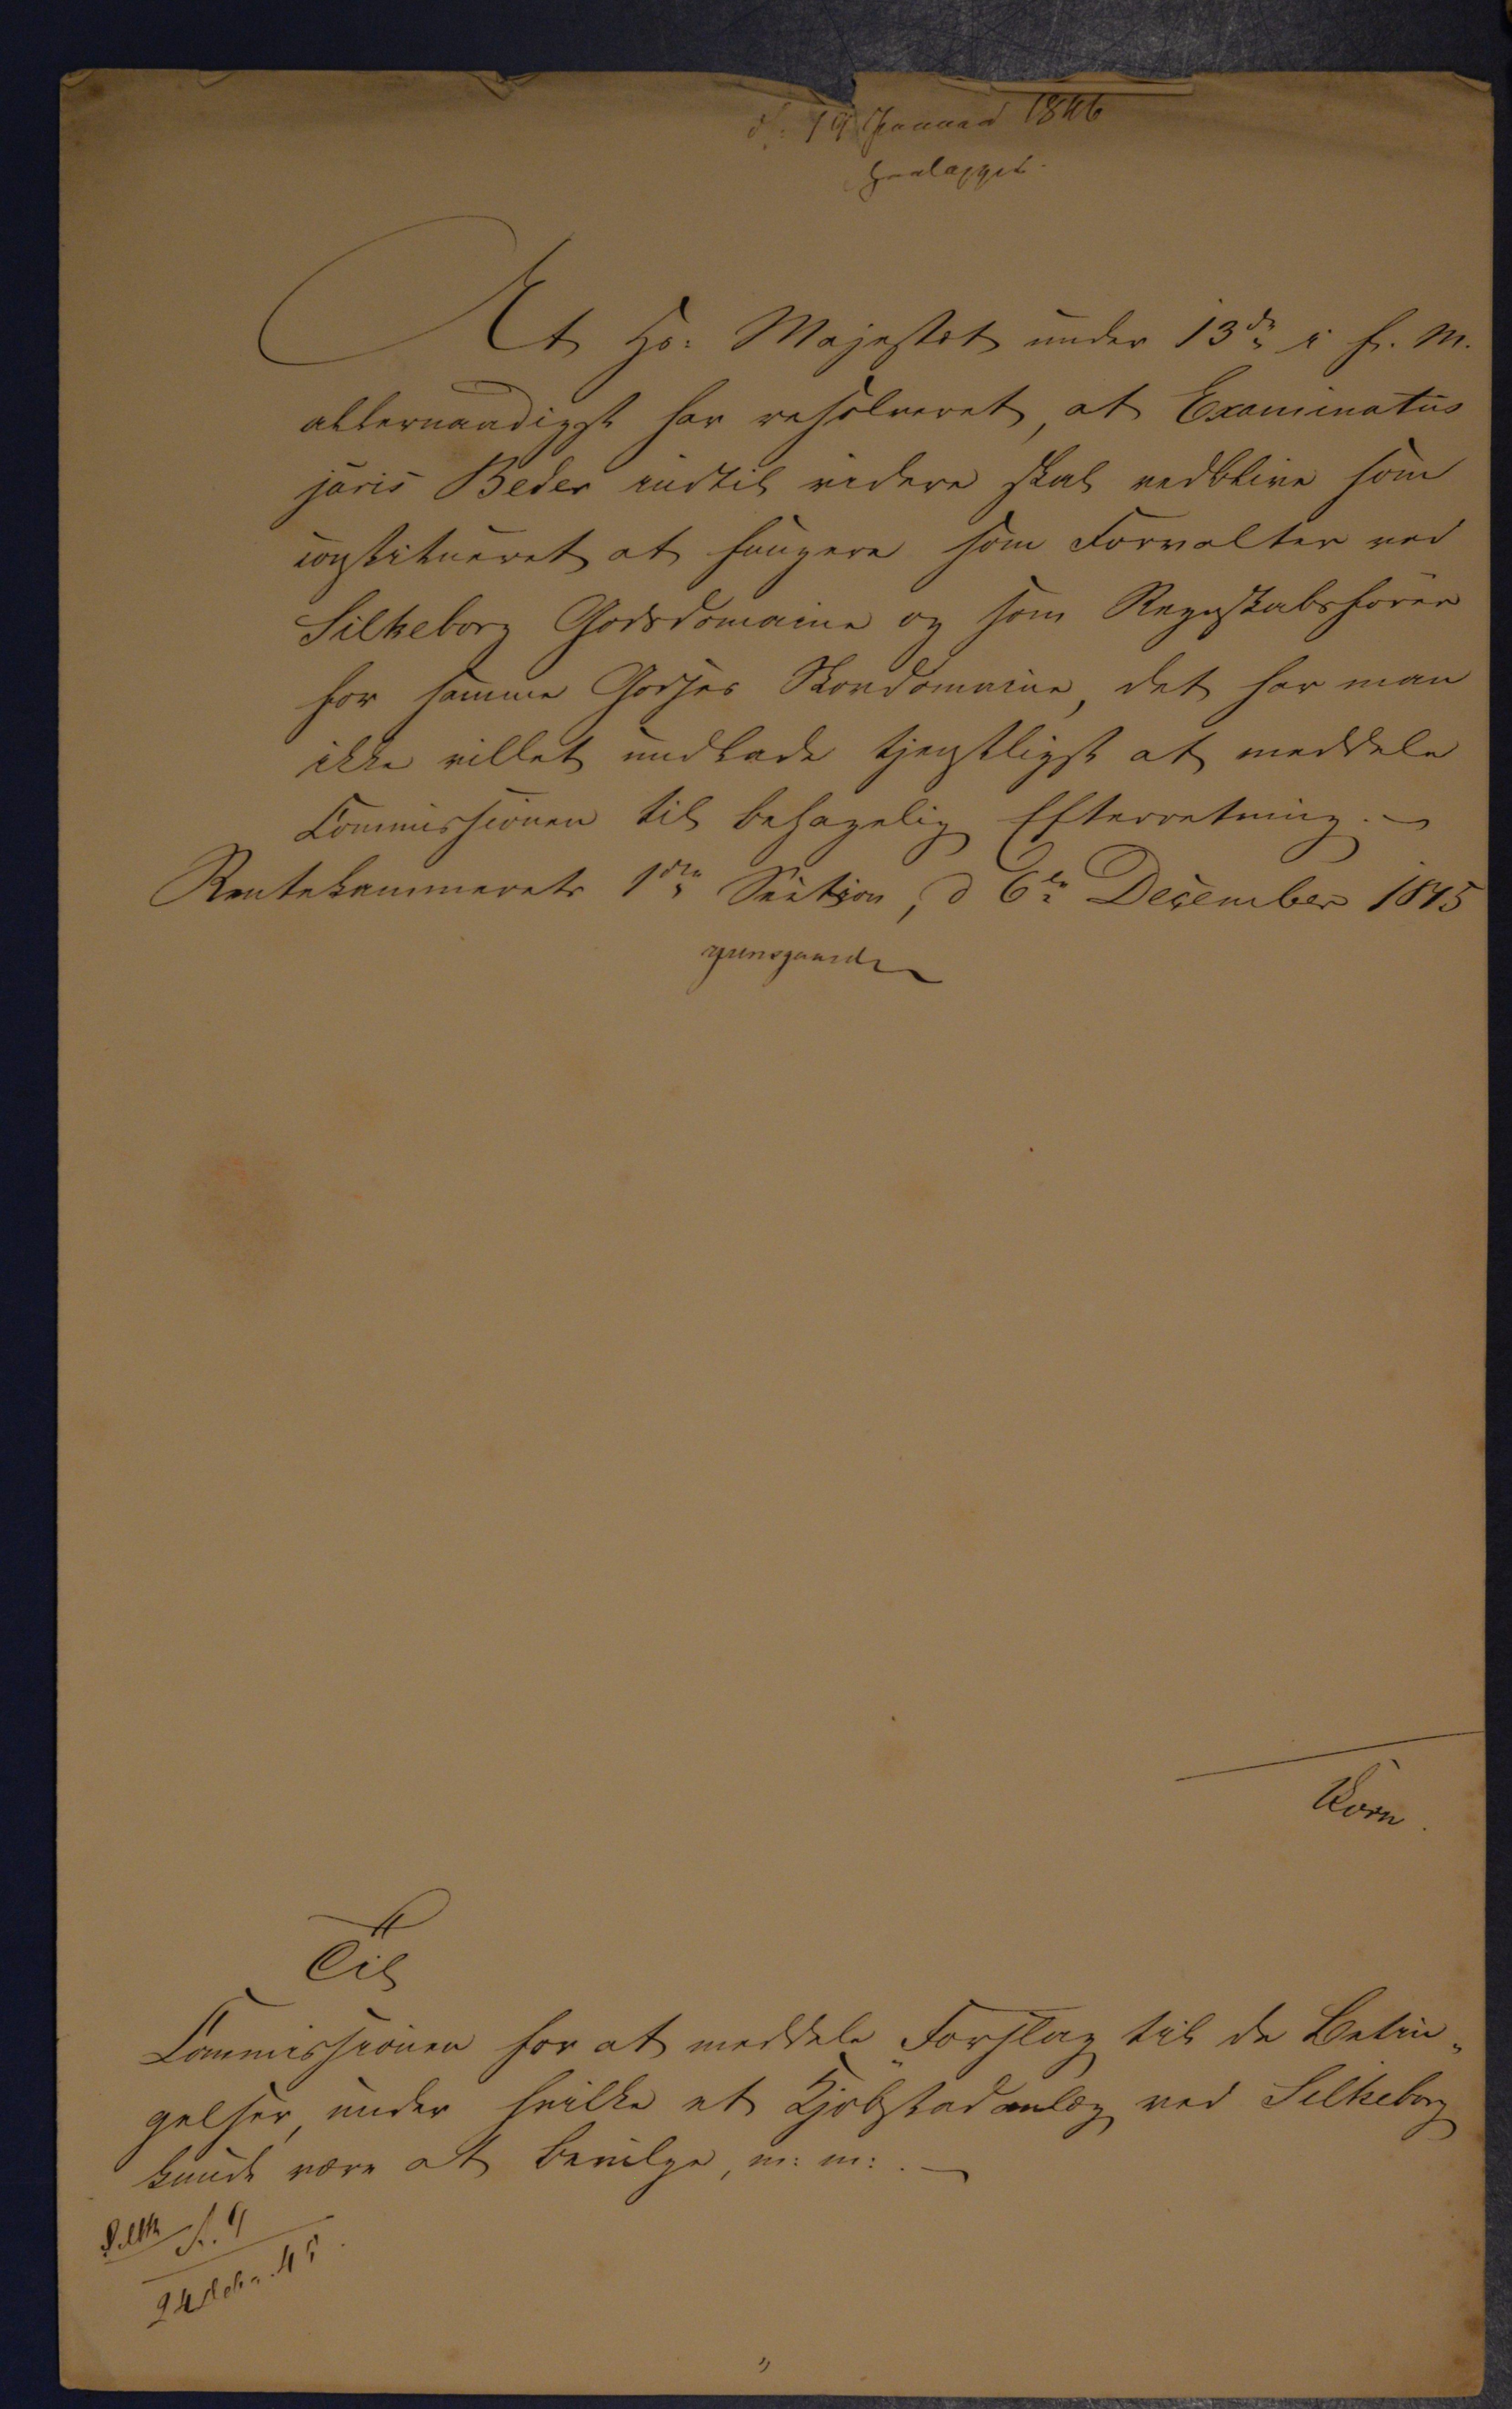 d. 19 Januar 1846
fremlagt.
At Hs: Majestæt under 13de i f. M.
allernaadigst har resolveret, at Examinatus
juris Beder indtil videre skal vedblive som
constitueret at fungere som Forvalter ved
Silkeborg Godsdomaine og som Regnskabsfører
for samme Godses Skovdomaine, det har man
ikke villet undlade tjenstligst at meddele
Commissionen til behagelig Efterretning. —
Rentekammerets 1ste Section, d 6te December 1845
Korn.
Til
Commissionen for at meddele Forslag til de Betin-
gelser, under hvilke et Kjøbstadanlæg ved Silkeborg
kunde være at bevilge, m: m: . —
Silk f. 9
24 Decbr. 45.